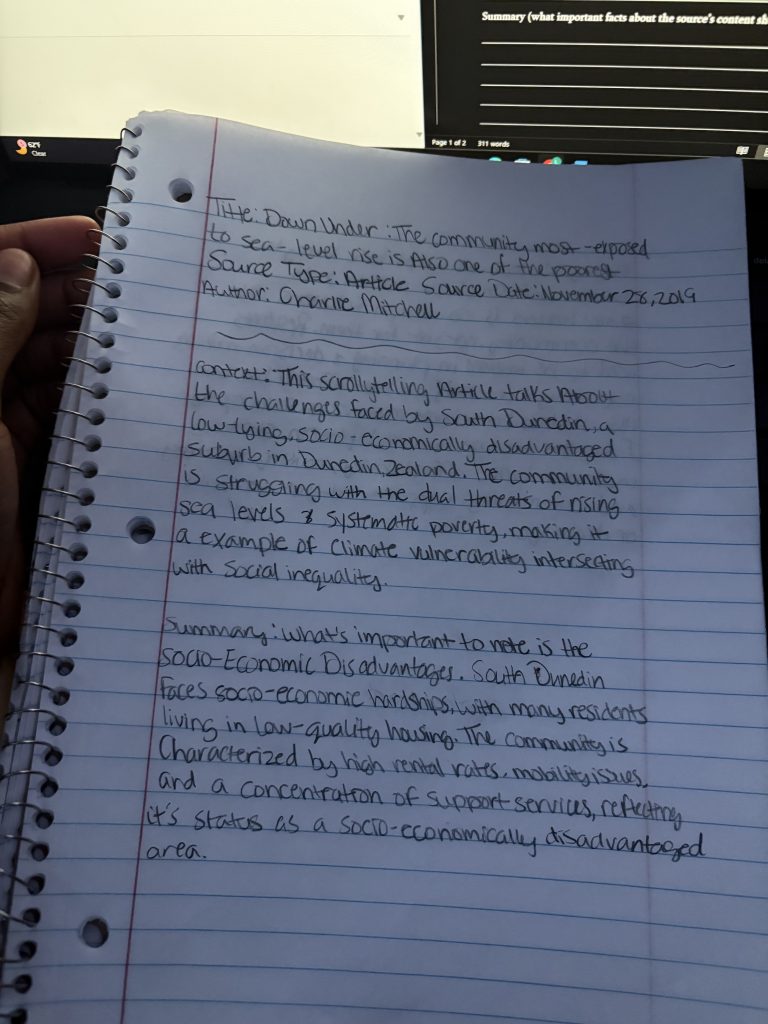 Summary (what important facts about the source's content sh
Page 1 of 2 311 words
62°F
Clear
Title: Down Under: The community most-exposed
to sea-level rise is Also one of the poorest
Source Type: Article Source Date: November 26, 2019
Author: Charlie Mitchell
Context: This scrollytelling Article talks About
the challenges faced by South Dunedin, a
low-lying, socio-economically disadvantaged
suburb in Dunedin, Zealand. The community
is struggling with the dual threats of rising
sea levels & systematic poverty, making it
a example of climate vulnerability intersecting
with social inequality.
Summary: what's important to note is the
Socio-Economic Disadvantages. South Dunedin
Faces socio-economic hardships, with many residents
living in low-quality housing. The community is
Characterized by high rental rates, mobility issues,
and a concentration of support services, reflecting
it's status as a socio-economically disadvantaged
area.